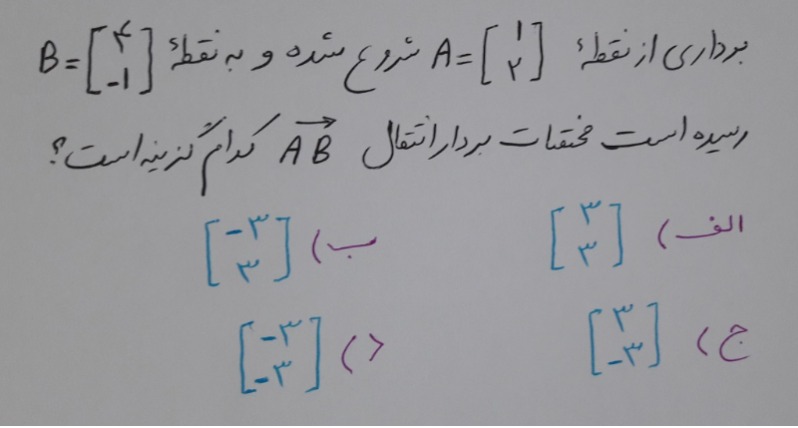 برداری از نقطهٔ A = [۱ ۲] شروع شده و به نقطهٔ B = [۴ -۱]
رسیده است مختصات بردار انتقال AB کدام گزینه است؟
الف) [۳ ۳] ب) [-۳ ۳]
ج) [۳ -۳] د) [-۳ -۳]